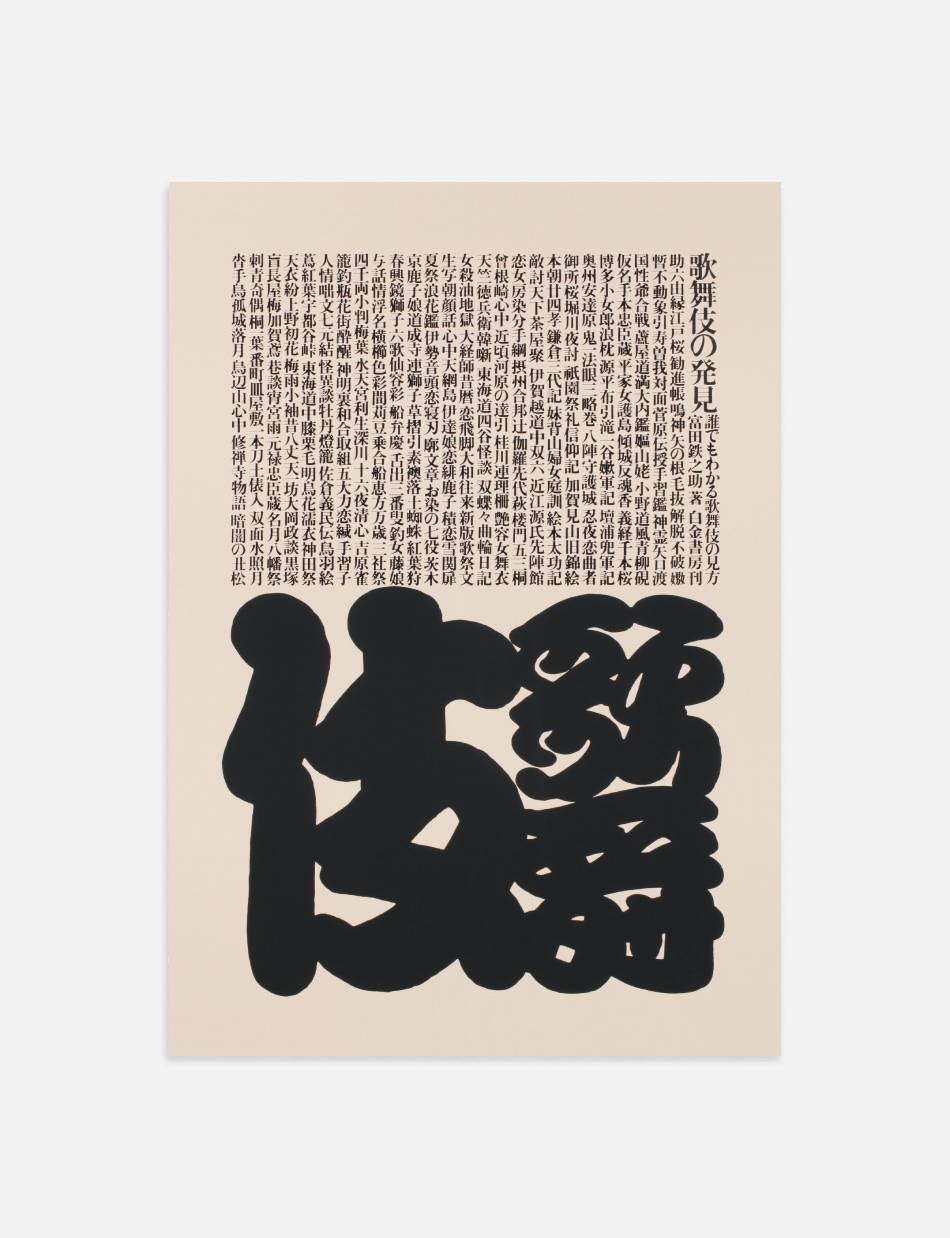 歌舞伎の発見
誰でもわかる歌舞伎の見方
富田鉄之助 著 白金書房刊
助六由縁江戸桜 勧進帳 鳴神 矢の根 毛抜 解脱 不破 嫐
暫 不動 象引 寿曽我対面 菅原伝授手習鑑 神霊矢口渡
国性爺合戦 蘆屋道満大内鑑 嫗山姥 小野道風青柳硯
仮名手本忠臣蔵 平家女護島 傾城反魂香 義経千本桜
博多小女郎浪枕 源平布引滝 一谷嫩軍記 壇浦兜軍記
奥州安達原 鬼一法眼三略巻 八陣守護城 忍夜恋曲者
御所桜堀川夜討 祇園祭礼信仰記 加賀見山旧錦絵
本朝廿四孝 鎌倉三代記 妹背山婦女庭訓 絵本太功記
敵討天下茶屋聚 伊賀越道中双六 近江源氏先陣館
恋女房染分手綱 摂州合邦辻 伽羅先代萩 楼門五三桐
曾根崎心中 近頃河原の達引 桂川連理柵 艶容女舞衣
天竺徳兵衛韓噺 東海道四谷怪談 双蝶々曲輪日記
女殺油地獄 大経師昔暦 恋飛脚大和往来 新版歌祭文
生写朝顔話 心中天網島 伊達娘恋緋鹿子 積恋雪関扉
夏祭浪花鑑 伊勢音頭恋寝刃 廓文章 お染の七役 茨木
京鹿子娘道成寺 連獅子 草摺引 素襖落 土蜘蛛 紅葉狩
春興鏡獅子 六歌仙容彩 船弁慶 舌出三番叟 釣女 藤娘
与話情浮名横櫛 色彩間苅豆 乗合船恵方万歳 三社祭
四千両小判梅葉 水天宮利生深川 十六夜清心 吉原雀
籠釣瓶花街酔醒 神明恵和合取組 五大力恋緘 手習子
人情咄文七元結 怪異談牡丹燈籠 佐倉義民伝 鳥羽絵
蔦紅葉宇都谷峠 東海道中膝栗毛 明烏花濡衣 神田祭
天衣紛上野初花 梅雨小袖昔八丈 天一坊大岡政談 黒塚
盲長屋梅加賀鳶 巷談宵宮雨 元禄忠臣蔵 名月八幡祭
刺青奇偶 桐一葉 番町皿屋敷 一本刀土俵入 双面水照月
沓手鳥孤城落月 鳥辺山心中 修禅寺物語 暗闇の丑松
歌舞伎